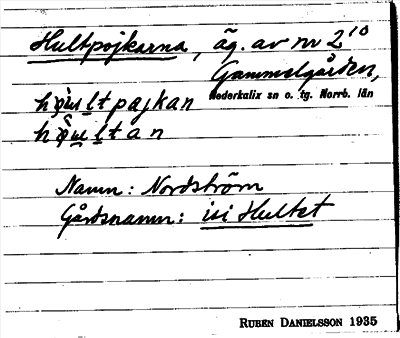 Hultpojkarna, äg. av nr 2¹⁰
Gammelgården,
Nederkalix sn o. tg. Norrb. län
pajkan
Namn: Nordström
Gårdsnamn: isi Hultet
RUBEN DANIELSSON 1935